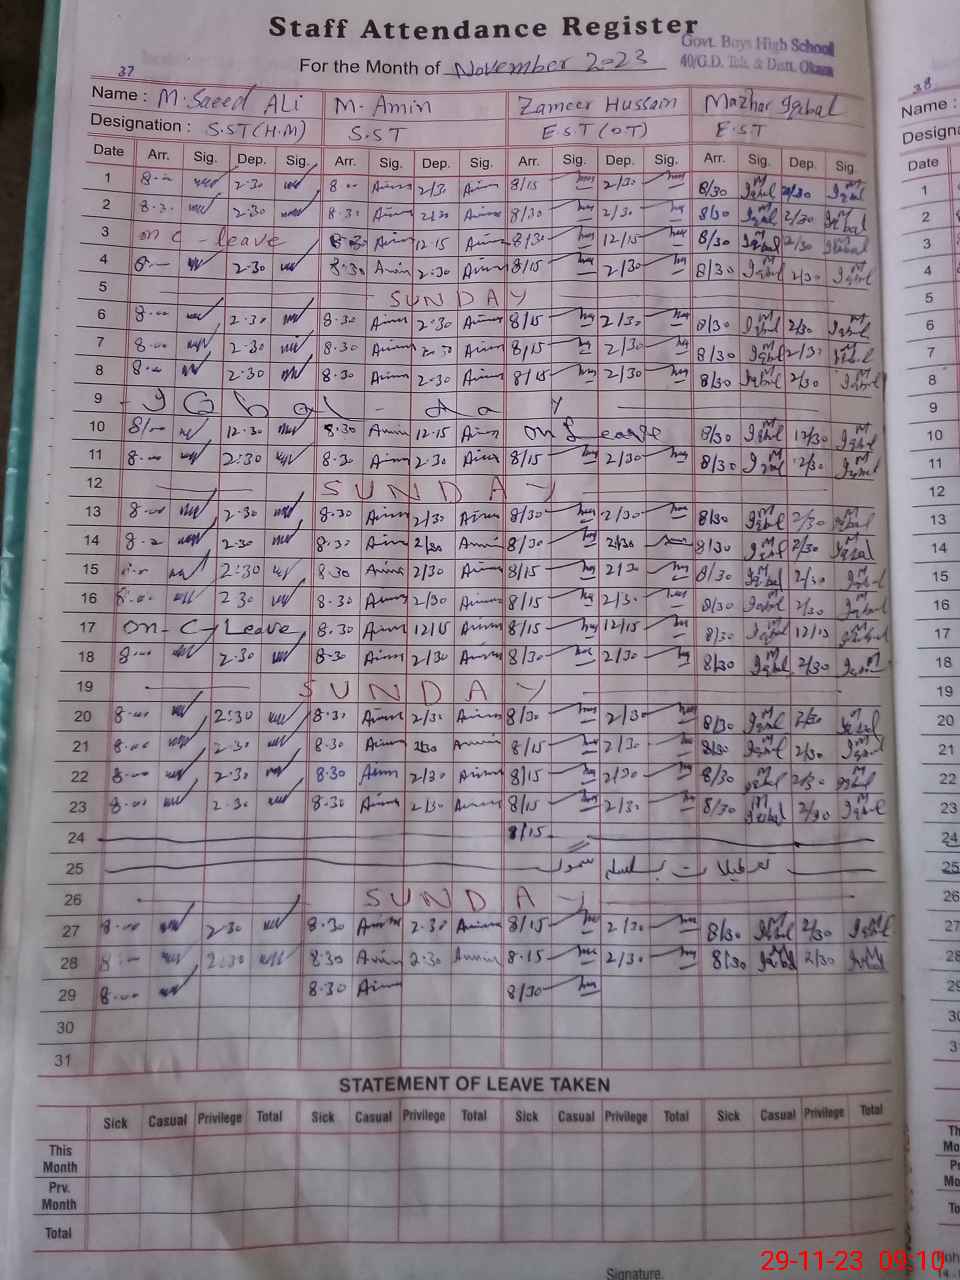 Staff Attendance Register
Govt. Boys High School
40/G.D. Teh. & Distt. Okara
For the Month of November 2023
37
38
Name : M. Saeed ALi M. Amin Zameer Hussain Mazhar Iqbal
Name :
Designation : S.ST (H.M) S.ST E.S.T (O.T) E.S.T
Date Arr. Sig. Dep. Sig. Arr. Sig. Dep. Sig. Arr. Sig. Dep. Sig. Arr. Sig. Dep. Sig.
Date
1 8.00 2.30 8.00 Amin 2/30 Amin 8/15 2/30 8/30 Iqbal 2/30 Iqbal
1
2 8.30 2.30 8.30 Amin 2.30 Amin 8/30 2/30 8/30 Iqbal 2/30 Iqbal
2
3 on C-leave 8.30 Amin 12.15 Amin 8/30 12/15 8/30 Iqbal 2/30 Iqbal
3
4 8.00 2.30 8.30 Amin 2.30 Amin 8/15 2/30 8/30 Iqbal 2/30 Iqbal
4
5 SUNDAY
5
6 8.00 2.30 8.30 Amin 2.30 Amin 8/15 2/30 8/30 Iqbal 2/30 Iqbal
6
7 8.00 2.30 8.30 Amin 2.30 Amin 8/15 2/30 8/30 Iqbal 2/30 Iqbal
7
8 8.00 2.30 8.30 Amin 2.30 Amin 8/15 2/30 8/30 Iqbal 2/30 Iqbal
8
9 - IQbal - day
9
10 8/00 12.30 8.30 Amin 12.15 Amin on Leave 8/30 Iqbal 12/30 Iqbal
10
11 8.00 2:30 8.30 Amin 2.30 Amin 8/15 2/30 8/30 Iqbal 2/30 Iqbal
11
12 SUNDAY
12
13 8.00 2.30 8.30 Amin 2/30 Amin 8/30 2/30 8/30 Iqbal 2/30 Iqbal
13
14 8.00 2.30 8.30 Amin 2/30 Amin 8/30 2/30 8/30 Iqbal 2/30 Iqbal
14
15 2:30 8.30 Amin 2/30 Amin 8/15 2/30 8/30 Iqbal 2/30 Iqbal
15
16 8.00 2.30 8.30 Amin 2/30 Amin 8/15 2/30 8/30 Iqbal 2/30 Iqbal
16
17 on-C-Leave 8.30 Amin 12/15 Amin 8/15 12/15 8/30 Iqbal 12/15 Iqbal
17
18 8.00 2.30 8.30 Amin 2/30 Amin 8/30 2/30 8/30 Iqbal 2/30 Iqbal
18
19 SUNDAY
19
20 8.00 2:30 8.30 Amin 2/30 Amin 8/30 2/30 8/30 Iqbal 2/30 Iqbal
20
21 8.00 2.30 8.30 Amin 2/30 Amin 8/15 2/30 8/30 Iqbal 2/30 Iqbal
21
22 8.00 2.30 8.30 Amin 2/30 Amin 8/15 2/30 8/30 Iqbal 2/30 Iqbal
22
23 8.00 2.30 8.30 Amin 2/30 Amin 8/15 2/30 8/30 Iqbal 2/30 Iqbal
23
24 8/15
24
25 تعطیلات بسلسلہ سموگ
25
26 SUNDAY
26
27 8.00 2.30 8.30 Amin 2.30 Amin 8/15 2/30 8/30 Iqbal 2/30 Iqbal
27
28 8.00 2:30 8.30 Amin 2.30 Amin 8.15 2/30 8/30 Iqbal 2/30 Iqbal
28
29 8.00 8.30 Amin 8/30
29
30
31
STATEMENT OF LEAVE TAKEN
Sick Casual Privilege Total Sick Casual Privilege Total Sick Casual Privilege Total Sick Casual Privilege Total
This Month
Prv. Month
Total
Signature.
29-11-23 09:10